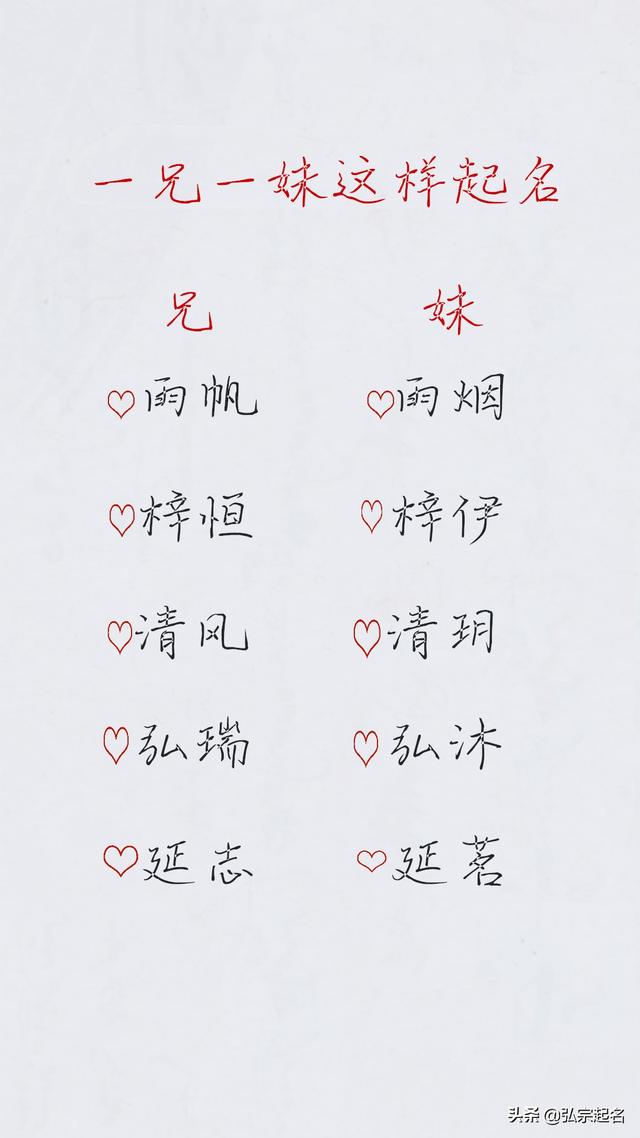 一兄一妹这样起名
兄 妹
♡雨帆 ♡雨烟
♡梓恒 ♡梓伊
♡清风 ♡清玥
♡弘瑞 ♡弘沐
♡延志 ♡延茗
头条 @弘宗起名